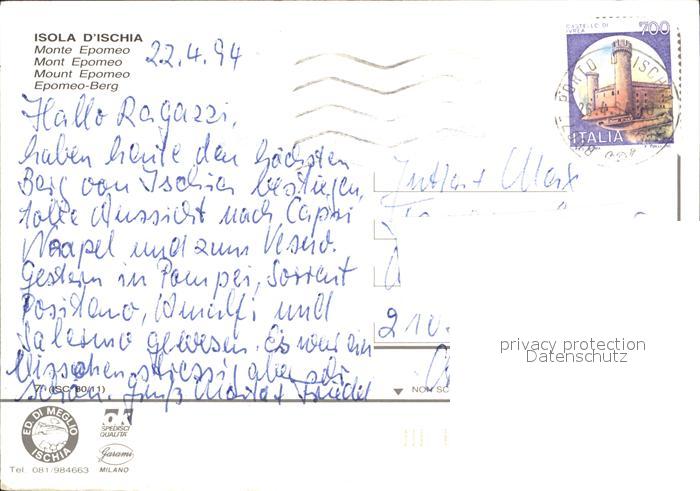 ISOLA D'ISCHIA
Monte Epomeo
Mont Epomeo
Mount Epomeo
Epomeo-Berg
22.4.94
Hallo Ragazzi,
haben heute den höchsten
Berg von Ischia bestiegen,
tolle Aussicht nach Capri
Neapel und zum Vesuv.
Gestern in Pompei, Sorrent
Positano, Amalfi und
Salerno gewesen. Es war ein
bisschen stressig aber sehr
schön. Gruß Friedel
CASTELLO DI
IVREA
700
ITALIA
PORTO ISCHIA
Jutta + Max
210
privacy protection
Datenschutz
NON SC
ED. DI MEGLIO
ISCHIA
ok
SPEDISCI
QUALITA'
Garami
MILANO
Tel. 081/984663